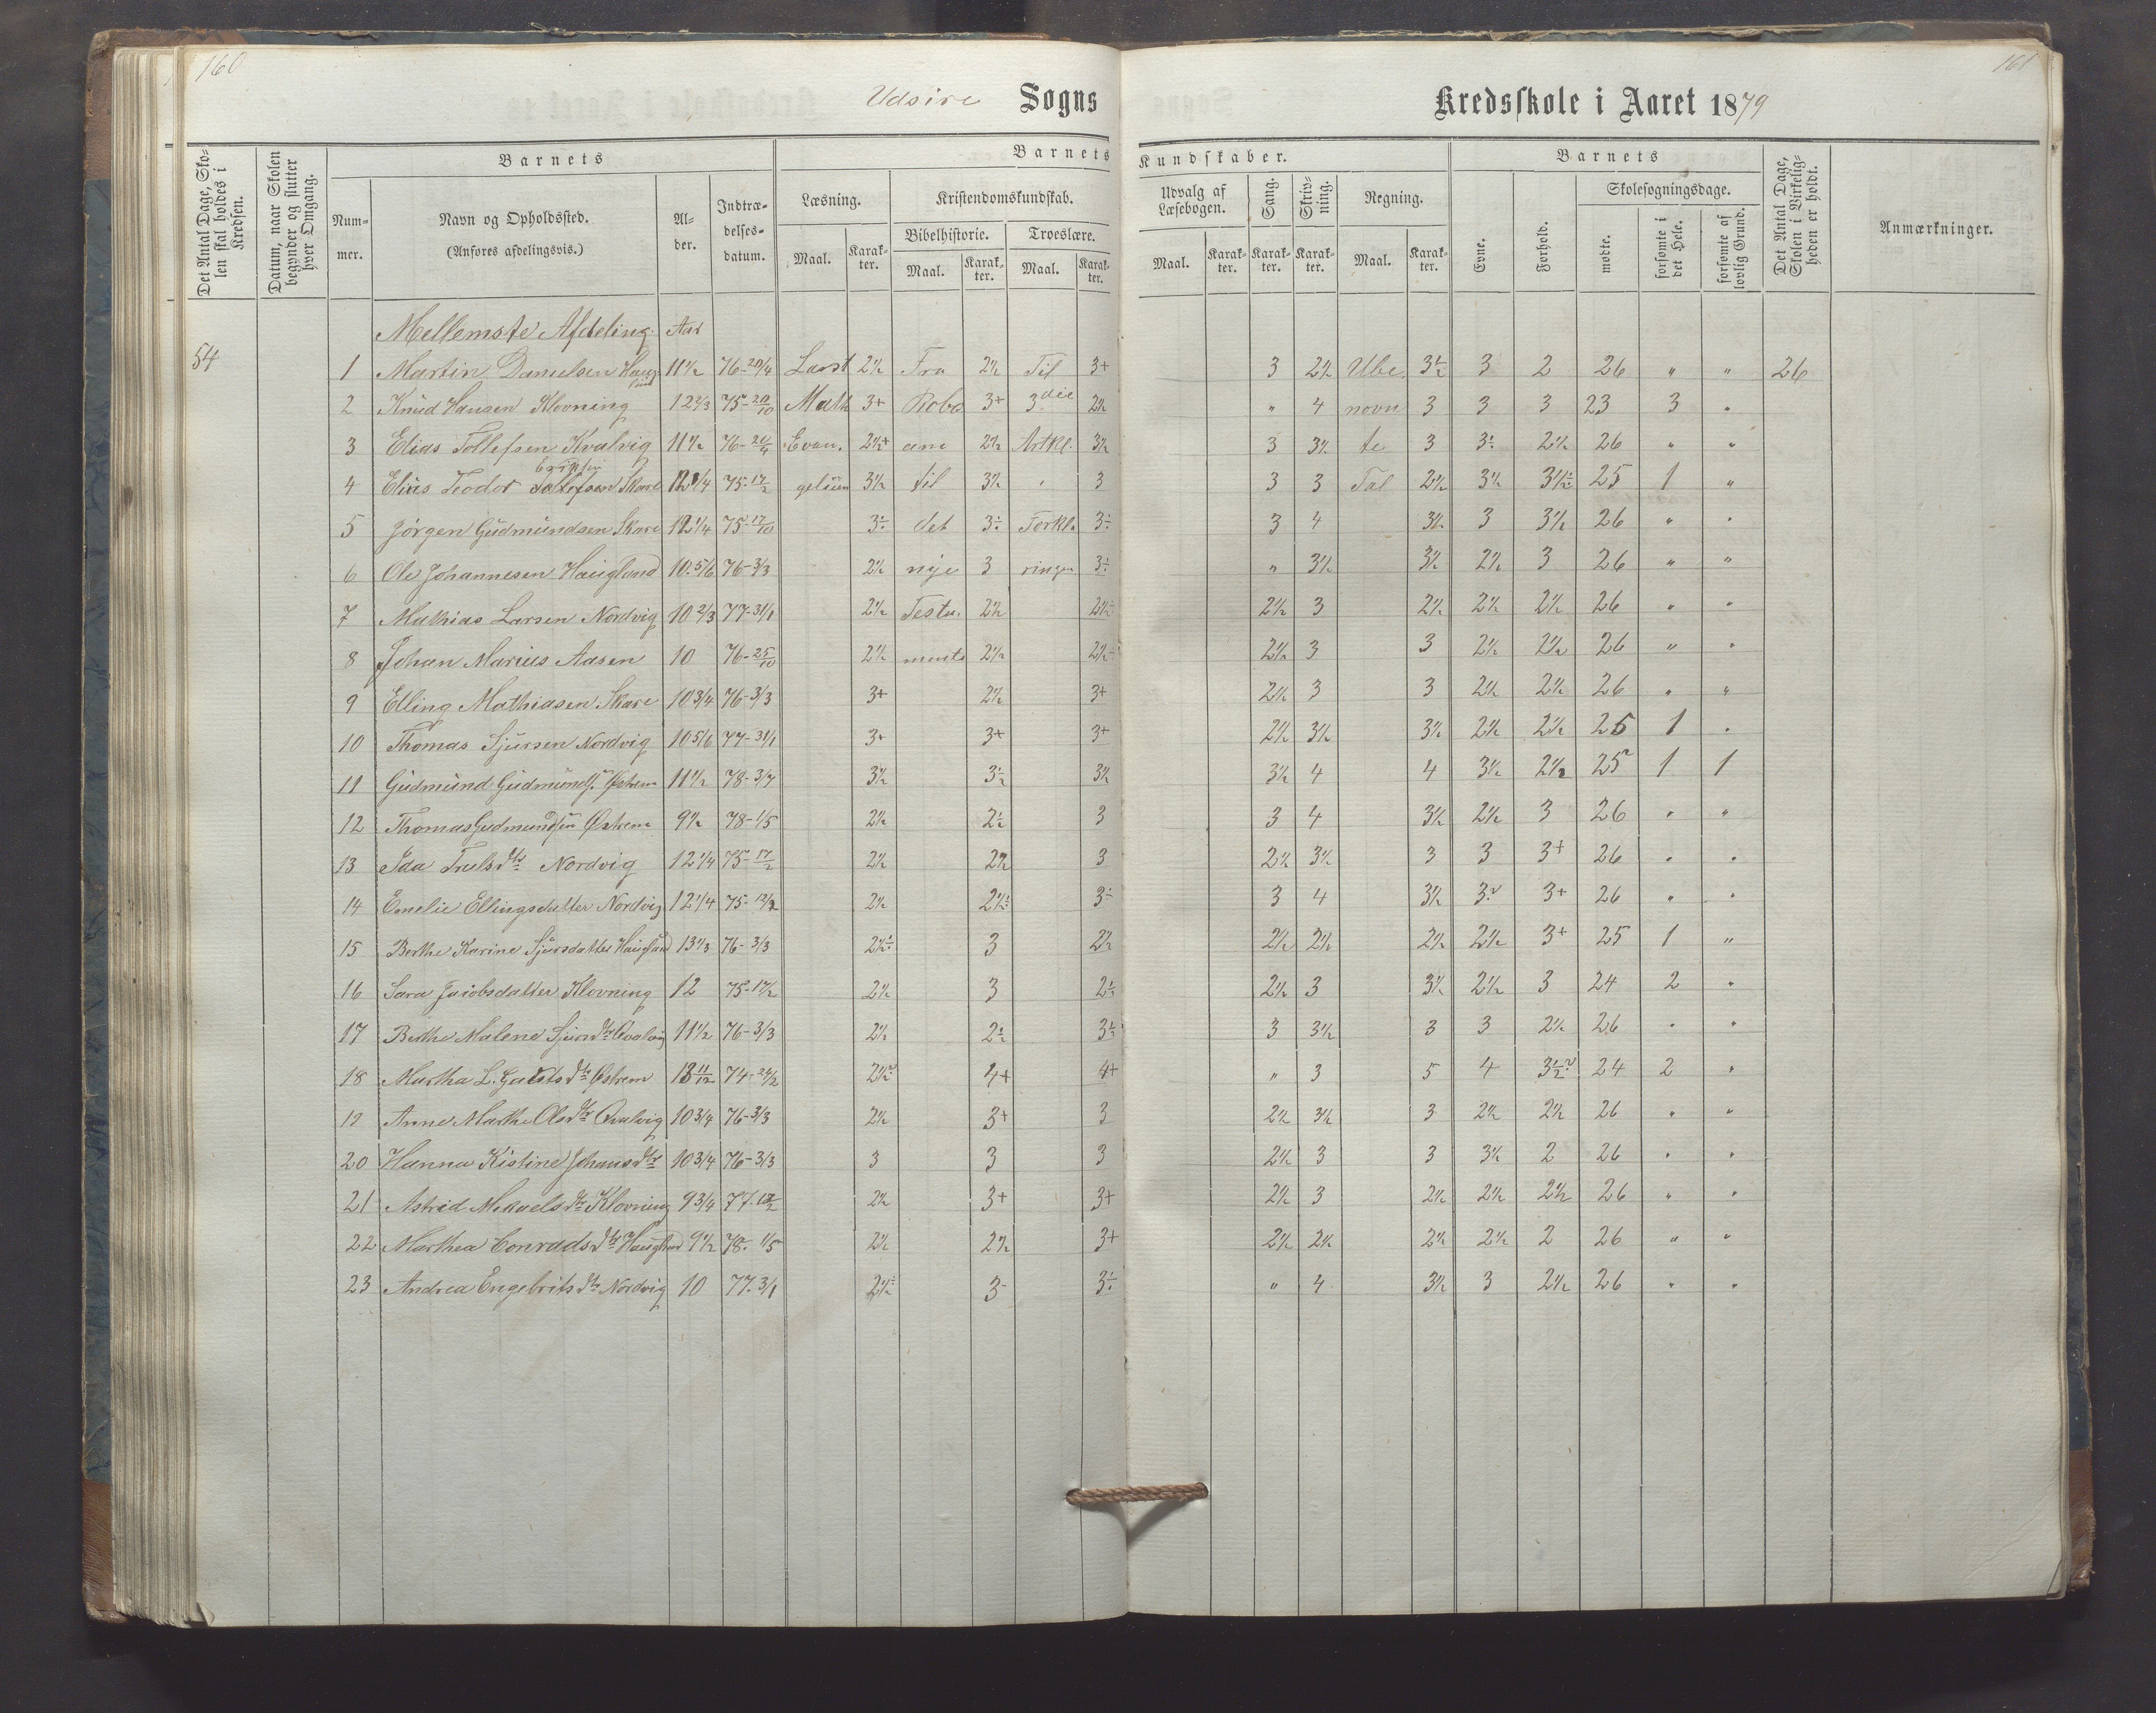 160
161
Udsire Sogns
Kredsskole i Aaret 1879
Det Antal Dage, Skolen skal holdes i Kredsen.
Datum, naar Skolen begynder og slutter hver Omgang.
Barnets
Barnets
Kundskaber.
Barnets
Det Antal Dage, Skolen i Virkeligheden er holdt.
Anmærkninger.
Nummer.
Navn og Opholdssted.
(Anføres afdelingsvis.)
Alder.
Indtrædelsesdatum.
Læsning.
Kristendomskundskab.
Udvalg af Læsebogen.
Sang.
Skrivning.
Regning.
Evne.
Forhold.
Skolesøgningsdage.
Bibelhistorie.
Troeslære.
mødte.
forsømte i det Hele.
forsømte af lovlig Grund.
Maal. Karakter. Maal. Karakter. Maal. Karakter.
Maal. Karakter. Karakter. Karakter. Maal. Karakter.
Mellemste Afdeling. Aar
54 1 Martin Danielsen Haugland 11 1/2 76-20/4 Læst 2 1/2 Fra 2 1/2 Til 3+ 3 2 1/2 Ube 3 1/2 3 2 26 " " 26
2 Knud Hansen Klovning 12 2/3 75-20/10 Math 3+ Robo 3+ 3die 2 1/2 " 4 novn 3 3 3 23 3 "
3 Elias Tollefsen Kvalvig 11 1/2 76-20/4 Evan. 2 1/2+ am 2 1/2 Artkl. 3 1/2 3 3 1/2 te 3 3÷ 2 1/2 26 " "
4 Elias Teodor Skare 12 1/4 75-17/2 gelium 3 1/2 til 3 1/2 " 3 3 3 Tal 2 1/2 3 1/2 3 1/2÷ 25 1 "
5 Jörgen Gudmundsen Skare 12 1/4 75-17/10 3÷ det 3÷ Forkla 3÷ 3 4 3 1/2 3 3 1/2 26 " "
6 Ole Johannesen Haugland 10 5/6 76-3/3 2 1/2 nye 3 ringen 3÷ " 3 1/2 3 1/2 2 1/2 3 26 " "
7 Mathias Larsen Nordvig 10 2/3 77-31/1 2 1/2 Testa. 2 1/2 2 1/2÷ 2 1/2 3 2 1/2 2 1/2 2 1/2 26 " "
8 Johan Marius Aasen 10 76-25/10 2 1/2 mente 2 1/2 2 1/2÷ 2 1/2 3 3 2 1/2 2 1/2 26 " "
9 Elling Mathiasen Skare 10 3/4 76-3/3 3+ 2 1/2 3+ 2 1/2 3 3 2 1/2 2 1/2 26 " "
10 Thomas Sjursen Nordvig 10 5/6 77-31/1 3+ 3+ 3+ 2 1/2 3 1/2 3 1/2 2 1/2 2 1/2 25 1 "
11 Gudmund Gudmunds. Östrem 11 1/2 78-3/7 3 1/2 3 1/2 3 1/2 3 1/2 4 4 3 1/2 2 1/2 25 1 1
12 Thomas Gudmundsen Östrem 9 1/2 78-1/5 2 1/2 2 1/2 3 3 4 3 1/2 2 1/2 3 26 " "
13 Ida Trulsdtr Nordvig 12 1/4 75-17/2 2 1/2 2 1/2 3 2 1/2 3 1/2 3 3 3+ 26 " "
14 Emelie Ellingsdatter Nordvig 12 1/4 75-12/2 2 1/2 2 1/2÷ 3÷ 3 4 3 1/2 3÷ 3+ 26 " "
15 Berthe Karine Sjursdatter Haugland 13 1/3 76-3/3 2 1/2÷ 3 2 1/2 2 1/2 2 1/2 2 1/2 2 1/2 3+ 25 1 "
16 Sara Jacobsdatter Klovning 12 75-17/2 2 1/2 3 2 1/2 2 1/2 3 3 1/2 2 1/2 3 24 2 "
17 Berthe Malene Sjursdtr Qvalvig 11 1/2 76-3/3 2 1/2 2 1/2 3 1/2 3 3 1/2 3 3 2 1/2 26 " "
18 Martha L. Östrem 13 11/12 74-24/2 2 1/2 4+ 4+ " 3 5 4 3 1/2 24 2 "
19 Anne Marthe Olsdtr Qvalvig 10 3/4 76-3/3 2 1/2 3+ 3 2 1/2 3 1/2 3 2 1/2 2 1/2 26 " "
20 Hanna Kistine Johansdtr 10 3/4 76-3/3 3 3 3 2 1/2 3 3 3 1/2 2 26 " "
21 Astrid Mikaelsdtr Klovning 9 3/4 77-12/2 2 1/2 3+ 3+ 2 1/2 3 2 1/2 2 1/2 2 1/2 26 " "
22 Marthea Conradsdtr Haugland 9 1/2 78-1/5 2 1/2 2 1/2 3+ 2 1/2 2 1/2 2 1/2 2 1/2 2 26 " "
23 Andrea Engebritsdtr Nordvig 10 77-3/1 2 1/2÷ 3- 3÷ " 4 3 1/2 3 2 1/2 26 " "